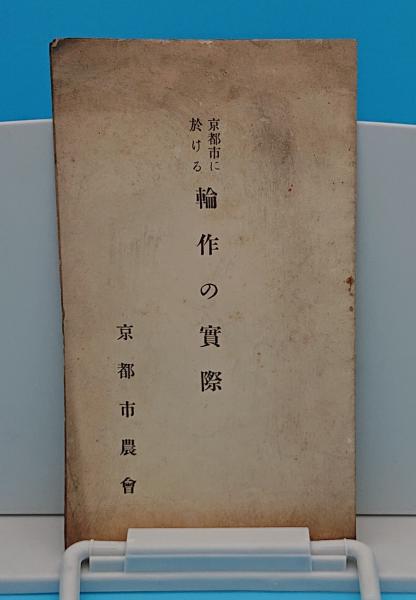 京都市に
於ける
輪作の實際
京都市農會